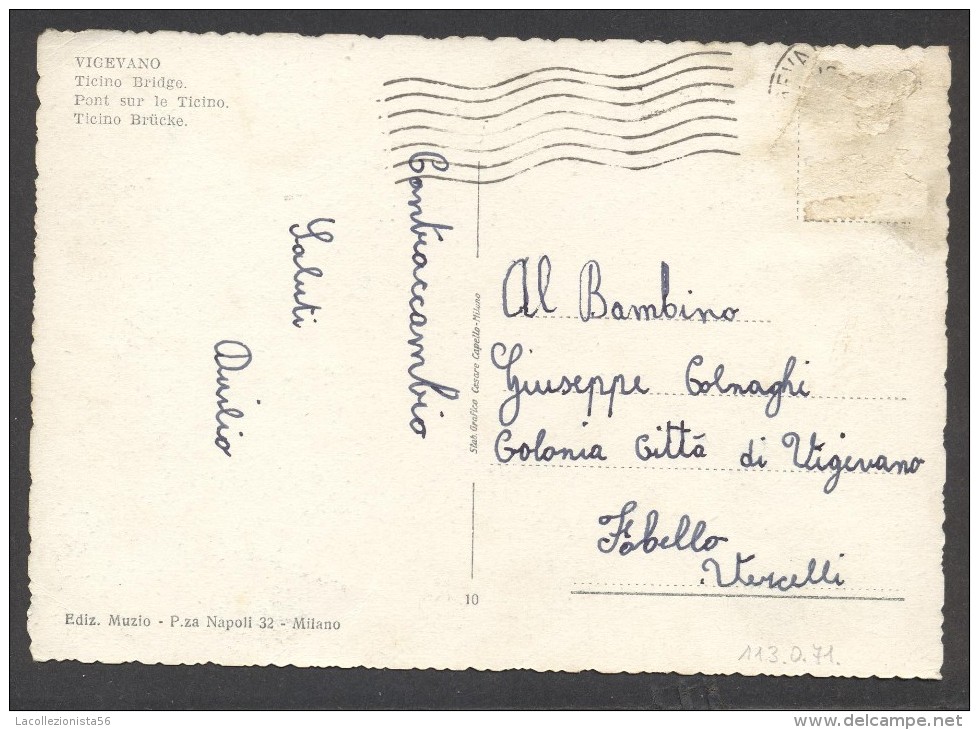 VIGEVANO
Ticino Bridge.
Pont sur le Ticino.
Ticino Brücke.
Contraccambio
Saluti
Duilio
Stab. Grafico Cesare Capello-Milano
Al Bambino
Giuseppe Colnaghi
Colonia Città di Vigevano
Fobello
Vercelli
10
Ediz. Muzio - P.za Napoli 32 - Milano
113.0.71.
Lacollezionista56
www.delcampe.net